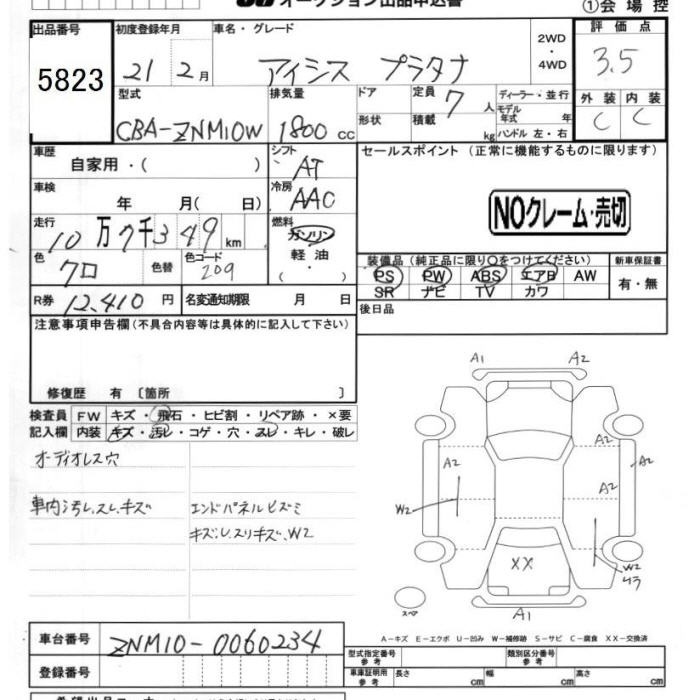 オークション出品申込書
①会場控
出品番号 初度登録年月 車名・グレード 評価点
5823 21 2月 アイシス プラタナ 2WD・4WD 3.5
型式 排気量 ドア 定員 7人 ディーラー・並行 外装 内装
CBA-ZNM10W 1800cc 形状 積載 kg モデル年式 年 C C
ハンドル 左・右
車歴 シフト セールスポイント (正常に機能するものに限ります)
自家用・( ) AT
車検 冷房
年 月( 日) AAC NOクレーム・売切
走行 燃料
10万7千349km ガソリン
軽油
・( )
色 色替 色コード 装備品(純正品に限り○をつけてください) 新車保証書
クロ 209 PS PW ABS エアB AW 有・無
SR ナビ TV カワ
R券 12,410円 名変通知期限 月 日 後日品
注意事項申告欄(不具合内容等は具体的に記入して下さい)
修復歴 有 〔箇所 〕
検査員 FW キズ・飛石・ヒビ割・リペア跡・×要
記入欄 内装 キズ・汚レ・コゲ・穴・スレ・キレ・破レ
オーディオレス穴
車内汚レ、スレ、キズ エンドパネルヒズミ
キズ、スリキズ、W2
A1 A2
A2
A2 A2 A2
W2
XX W2
スペア A1
A-キズ E-エクボ U-凹み W-補修跡 S-サビ C-腐食 XX-交換済
車台番号 ZNM10-0060234
型式指定番号 参考 類別区分番号 参考
登録番号
車庫証明用 参考 長さ cm 幅 cm 高さ cm